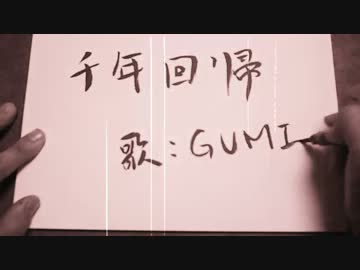 千年回帰
歌:GUMI